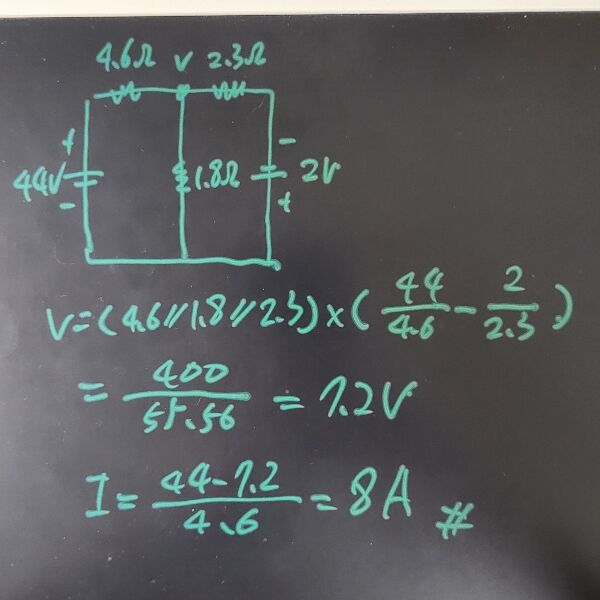 4.6Ω V 2.3Ω
+ −
44V 1.8Ω 2V
− +
V=(4.6//1.8//2.3)×(44/4.6 − 2/2.3)
= 400/55.56 = 7.2V
I = 44-7.2/4.6 = 8A #